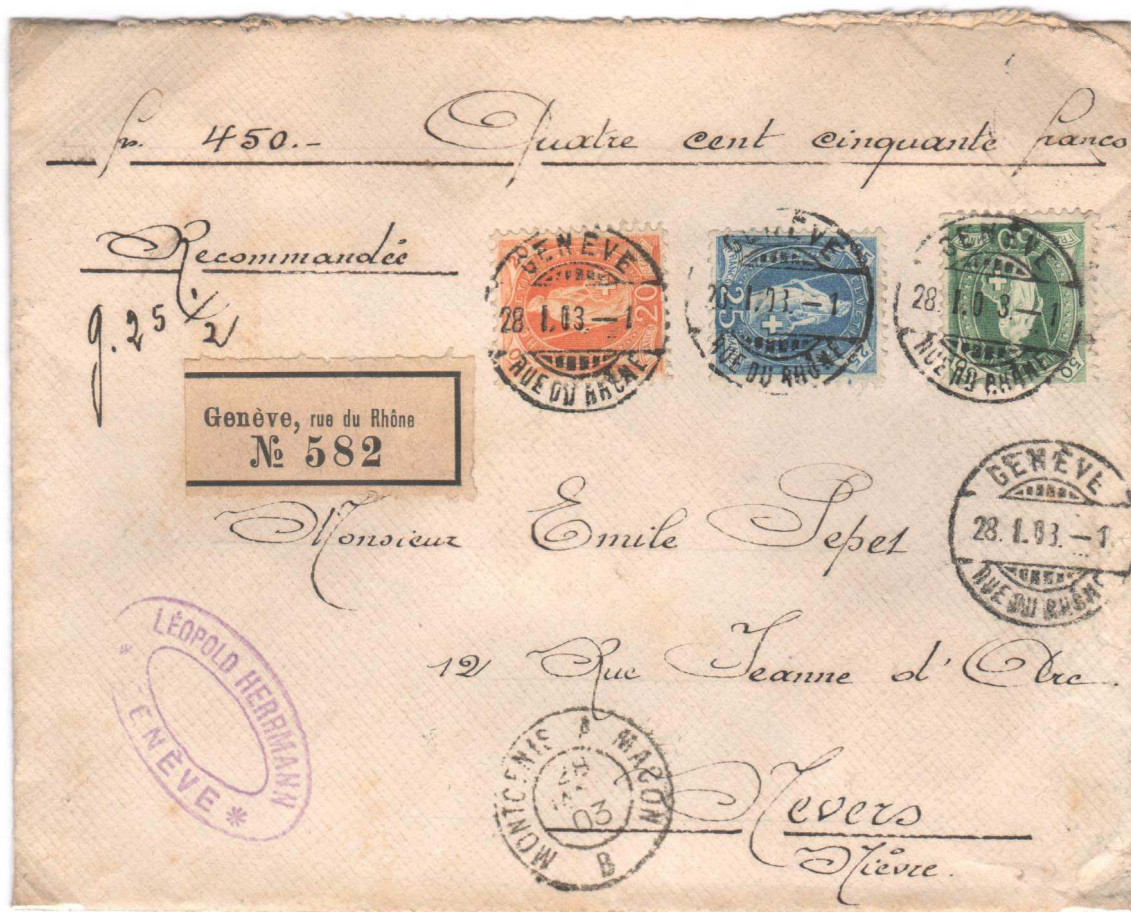 fr. 450.- Quatre cent cinquante francs
Recommandée
g. 25 1/2
GENÈVE
28.I.03.—1
RUE DU RHÔNE
20
GENÈVE
28.I.03.—1
RUE DU RHÔNE
25
GENÈVE
28.I.03.—1
RUE DU RHÔNE
50
Genève, rue du Rhône
№ 582
GENÈVE
28.I.03.—1
RUE DU RHÔNE
Monsieur Emile Sepet
12 Rue Jeanne d'Arc.
LÉOPOLD HERRMANN
* GENÈVE *
MONTCENIS A MACON
28
03
B
Nevers
Nièvre.